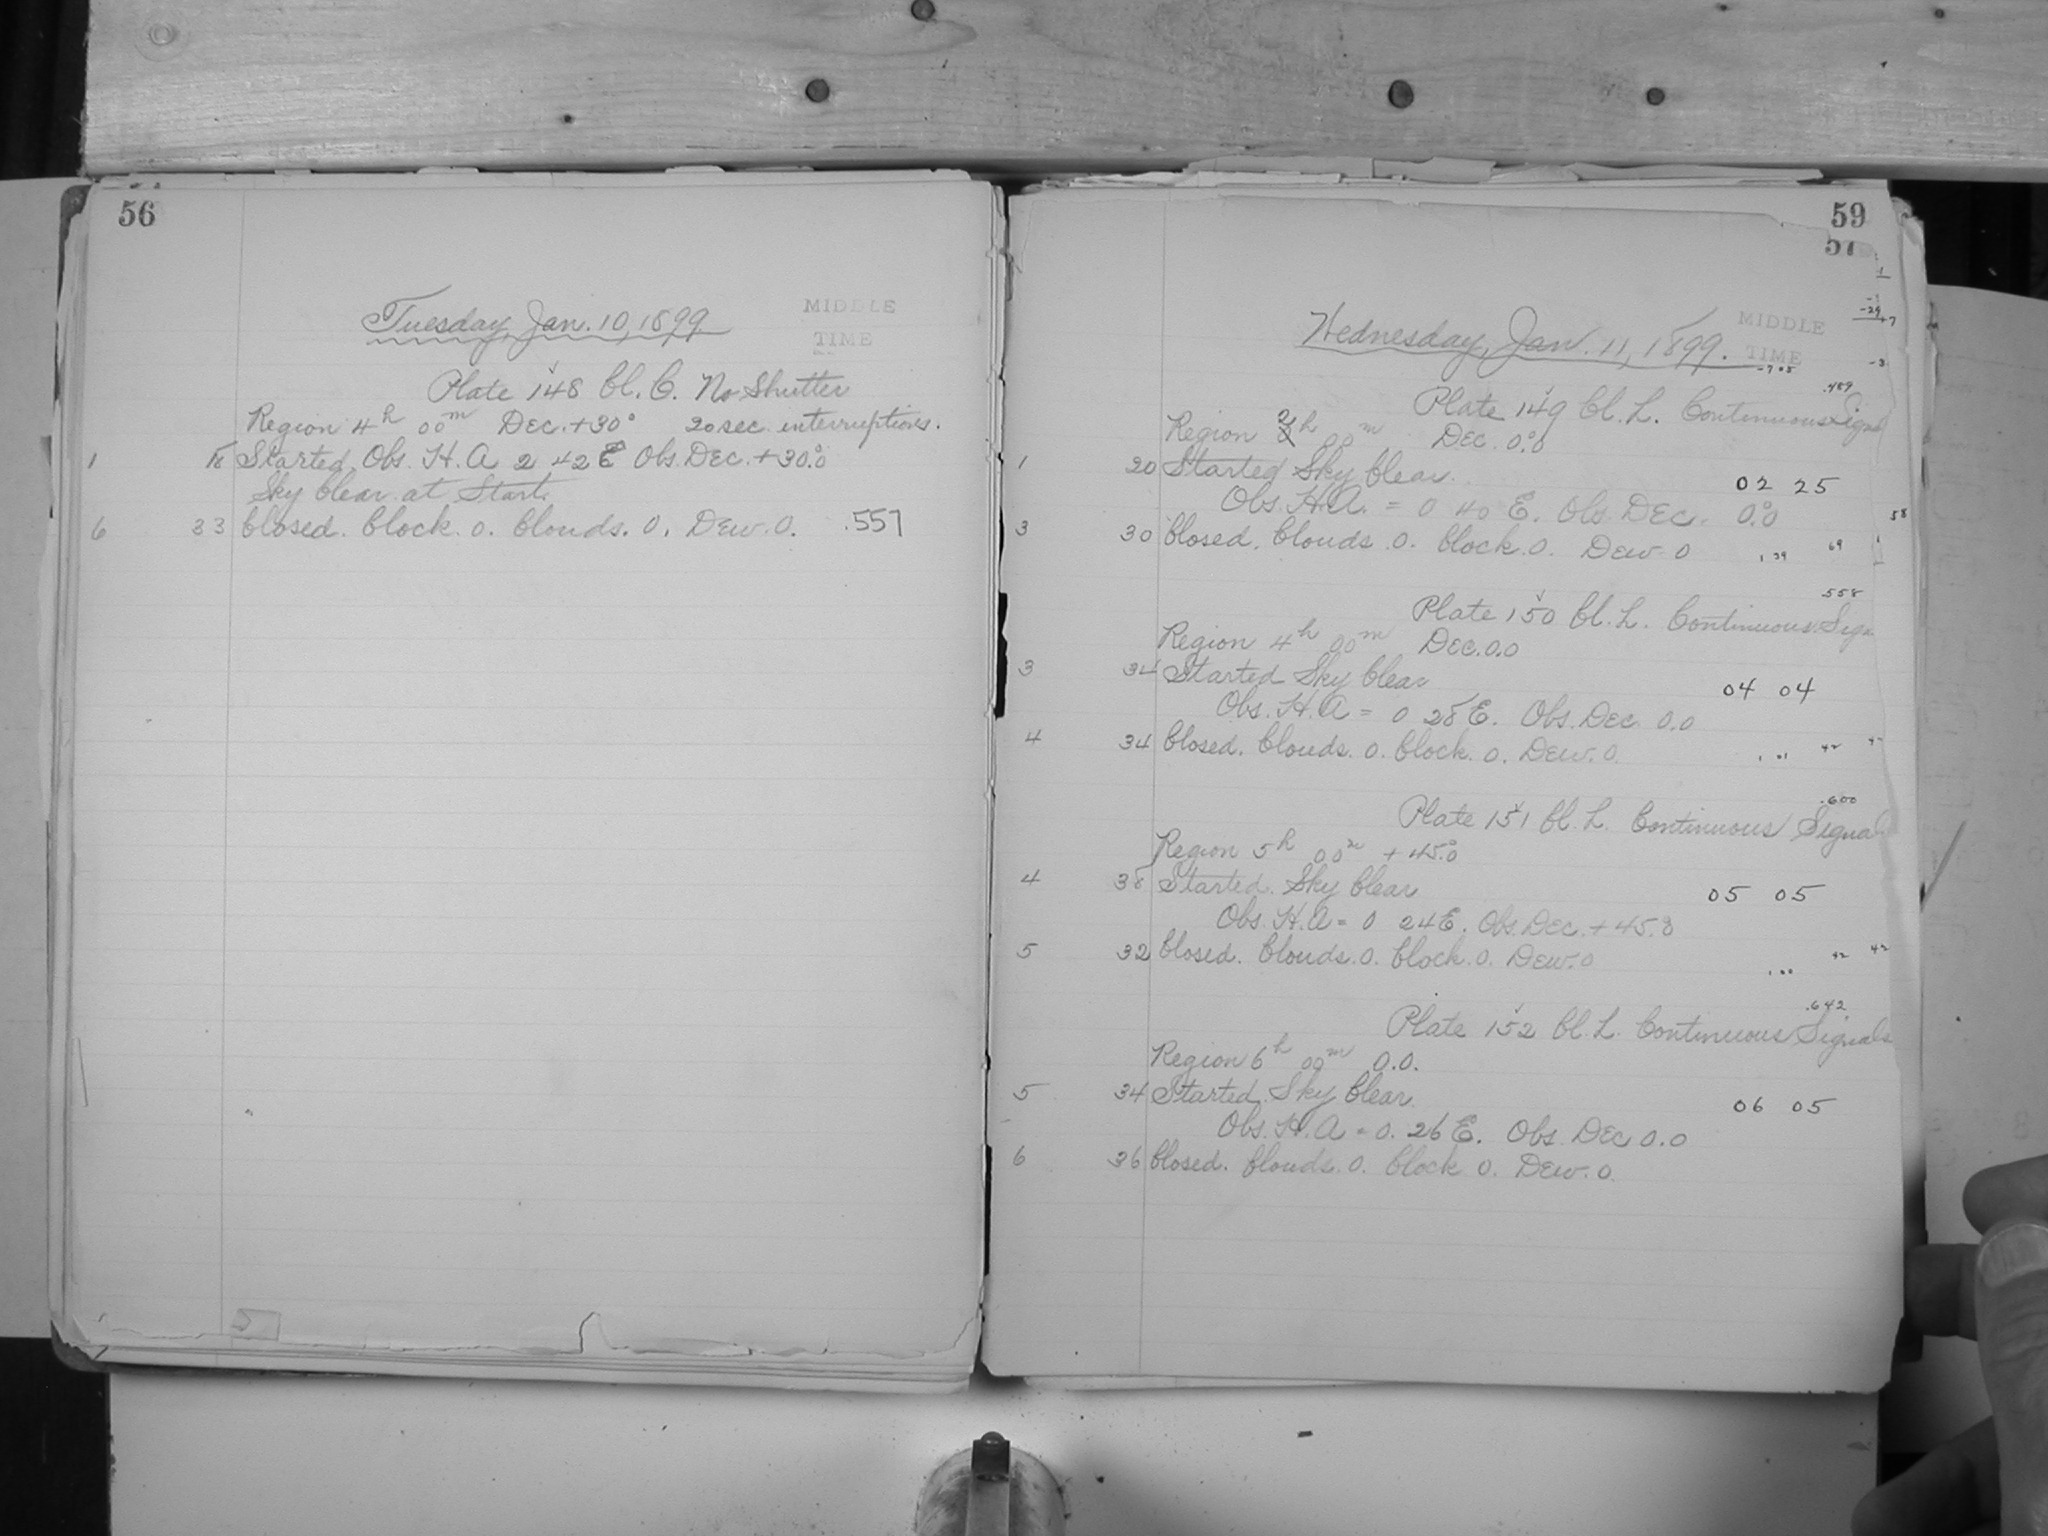 56
Tuesday, Jan. 10, 1899
MIDDLE
TIME
Plate 148 Cl. C. No Shutter
Region 4h 00m Dec. +30° 20 sec. interruptions.
1 18 Started. Obs. H. A 2 42 E Obs. Dec. +30.°0
Sky Clear at Start.
6 33 Closed. Clock. 0. Clouds. 0. Dew. 0. .557
59
57
Wednesday, Jan. 11, 1899.
MIDDLE
TIME
.489
Plate 149 Cl. L. Continuous Signa
Region 2h 00m Dec. 0.°0
1 20 Started Sky Clear.
02 25
Obs. H.A. = 0 40 E. Obs. Dec. 0.°0
58
3 30 Closed. Clouds. 0. Clock. 0. Dew. 0
1 39 69
.558
Plate 150 Cl. L. Continuous Sign
Region 4h 00m Dec. 0.0
3 34 Started Sky Clear
04 04
Obs. H. A = 0 28 E. Obs. Dec. 0.0
4 34 Closed. Clouds. 0. Clock. 0. Dew. 0
1 01 42
.600
Plate 151 Cl. L. Continuous Signal
Region 5h 00m + 45.°0
4 38 Started. Sky Clear
05 05
Obs. H. A = 0 24 E. Obs. Dec. + 45.0
5 32 Closed. Clouds. 0. Clock. 0. Dew. 0
1 00 42 42
.642
Plate 152 Cl. L. Continuous Signals
Region 6h 00m 0.0.
5 34 Started. Sky Clear.
06 05
Obs. H. A = 0. 26 E. Obs. Dec 0.0
6 36 Closed. Clouds. 0. Clock 0. Dew. 0.